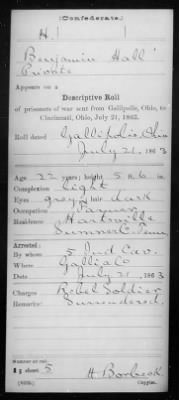 (Confederate.)
H.
Benjamin Hall
Private
Appears on a
Descriptive Roll
of prisoners of war sent from Gallipolis, Ohio, to
Cincinnati, Ohio, July 21, 1863.
Roll dated Gallipolis, Ohio
July 21, 1863
Age 22 years; height 5 ft. 6 in.
Complexion light
Eyes grey; hair dark
Occupation Farmer
Residence Hartsville
Sumner Co Tenn
Arrested:
By whom 5 Ind Cav.
Where Gallia Co
Date July 21 1863
Charges Rebel Soldier
Remarks: Surrendered.
Number of roll:
sheet 5
Copyist.